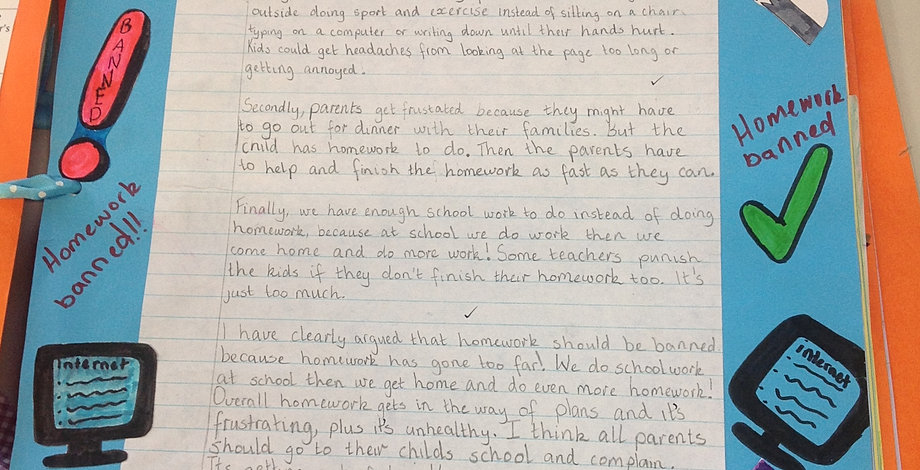 outside doing sport and exercise instead of sitting on a chair
typing on a computer or writing down until their hands hurt.
Kids could get headaches from looking at the page too long or
getting annoyed.
Secondly, parents get frustated because they might have
to go out for dinner with their families. But the
child has homework to do. Then the parents have
to help and finish the homework as fast as they can.
Finally, we have enough school work to do instead of doing
homework, because at school we do work then we
come home and do more work! Some teachers punish
the kids if they don't finish their homework too. It's
just too much.
I have clearly argued that homework should be banned
because homework has gone too far! We do school work
at school then we get home and do even more homework!
Overall homework gets in the way of plans and it's
frustrating, plus it's unhealthy. I think all parents
should go to their childs school and complain.
BANNED
Homework
banned!!
Internet
Homework
banned
Internet